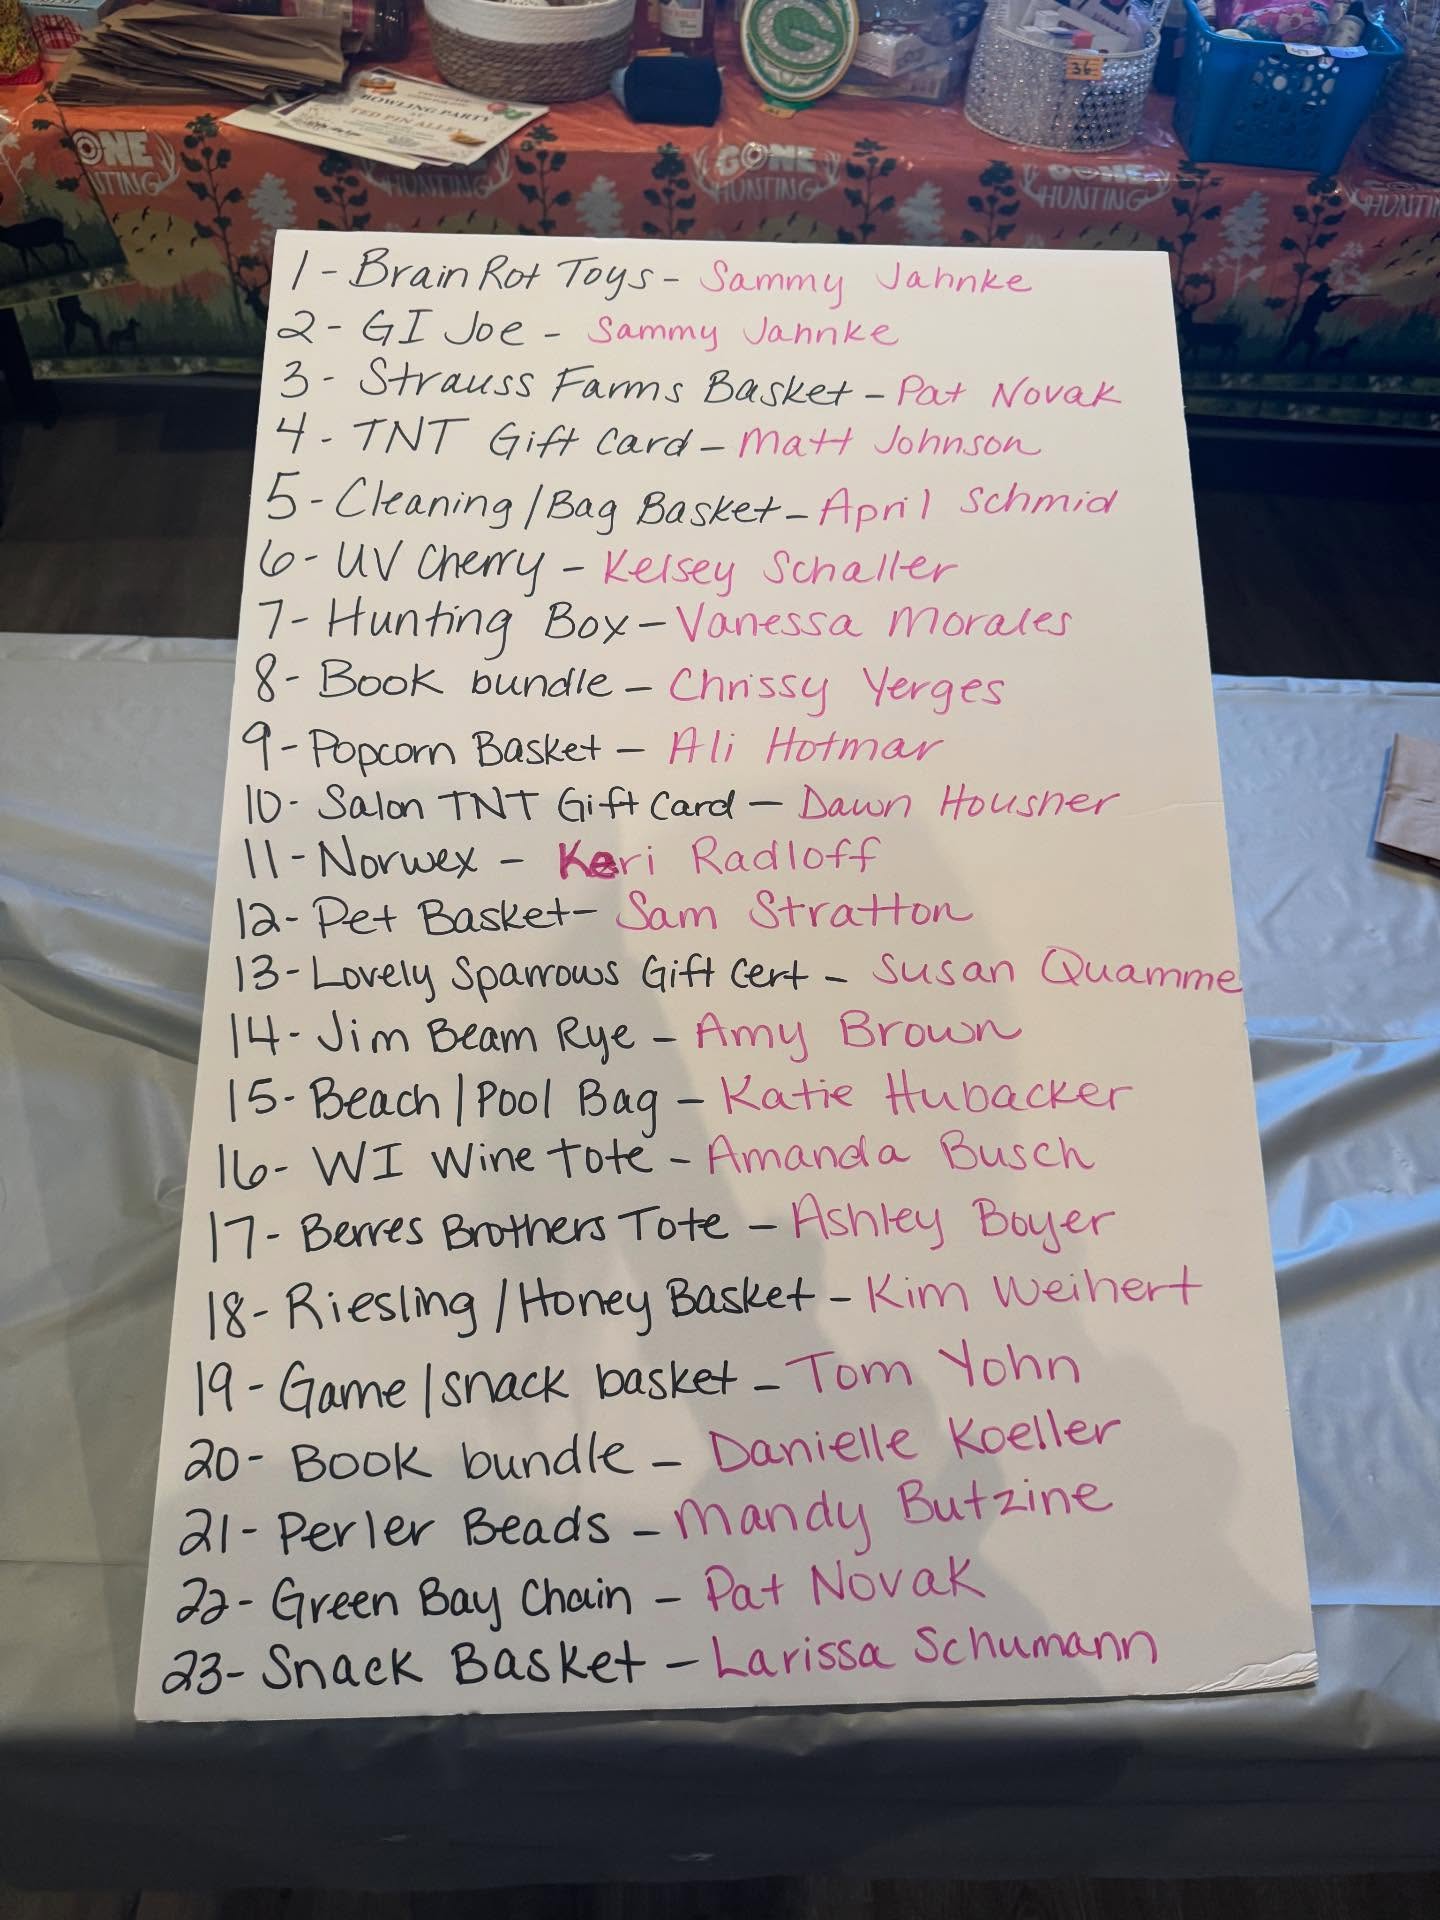 BOWLING PARTY
TED PIN ALLEY
G
36
ONE
UNTING
HUNTING
GONE
HUNTING
GONE
HUNTING
HUNTIN
1 - Brain Rot Toys - Sammy Jahnke
2 - GI Joe - Sammy Jahnke
3 - Strauss Farms Basket - Pat Novak
4 - TNT Gift Card - Matt Johnson
5 - Cleaning / Bag Basket - April Schmid
6 - UV Cherry - Kelsey Schaller
7 - Hunting Box - Vanessa Morales
8 - Book bundle - Chrissy Yerges
9 - Popcorn Basket - Ali Hotmar
10 - Salon TNT Gift Card - Dawn Housner
11 - Norwex - Keri Radloff
12 - Pet Basket - Sam Stratton
13 - Lovely Sparrows Gift Cert - Susan Quamme
14 - Jim Beam Rye - Amy Brown
15 - Beach | Pool Bag - Katie Hubacker
16 - WI Wine Tote - Amanda Busch
17 - Berres Brothers Tote - Ashley Boyer
18 - Riesling / Honey Basket - Kim Weihert
19 - Game | snack basket - Tom Yohn
20 - Book bundle - Danielle Koeller
21 - Perler Beads - Mandy Butzine
22 - Green Bay Chain - Pat Novak
23 - Snack Basket - Larissa Schumann